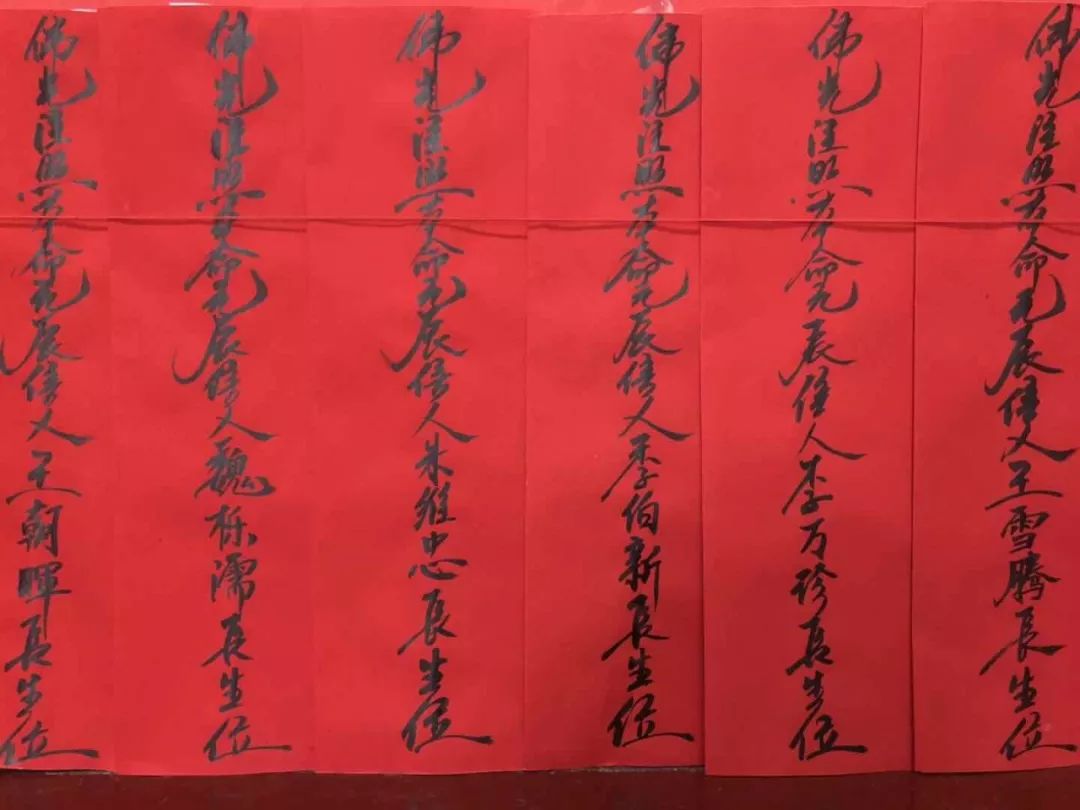 佛光注照本命元辰信人王雪腾长生位
佛光注照本命元辰信人李万珍长生位
佛光注照本命元辰信人李伯新长生位
佛光注照本命元辰信人朱维忠长生位
佛光注照本命元辰信人魏栎濡长生位
佛光注照本命元辰信人王朝晖长生位